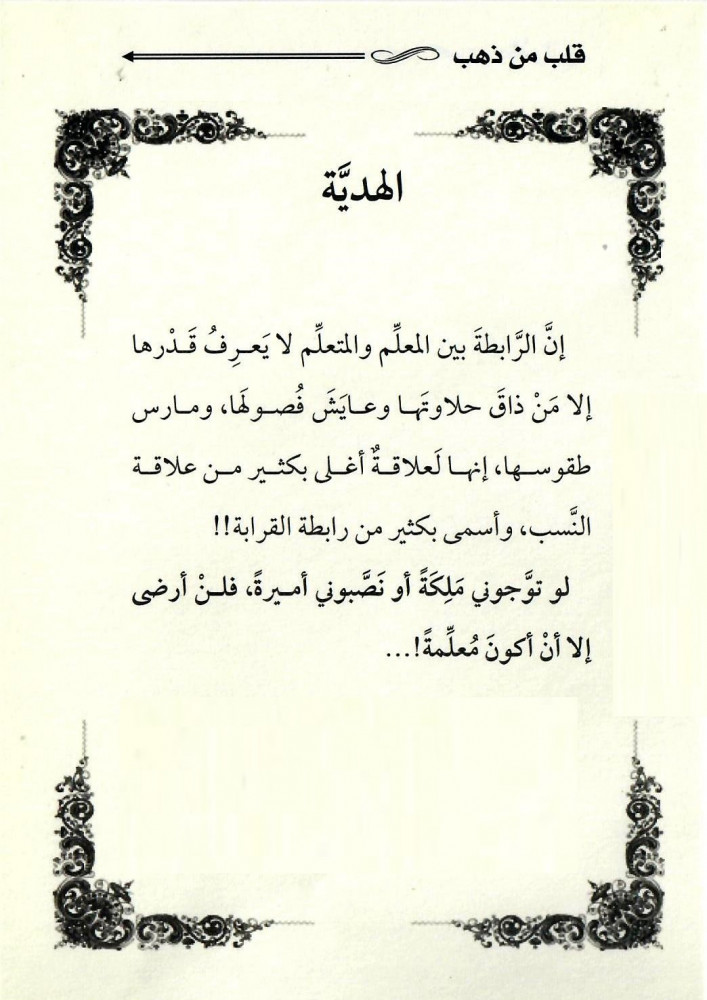 قلب من ذهب
الهديَّة
إنَّ الرَّابطةَ بين المعلِّم والمتعلِّم لا يَعـرِفُ قَـدْرها
إلا مَنْ ذاقَ حلاوتَهـا وعـايَشَ فُصـولَها، ومـارس
طقوسـها، إنهـا لَعلاقـةٌ أغـلى بكثـير مـن علاقـة
النَّسب، وأسمى بكثير من رابطة القرابة!!
لو توَّجوني مَلِكَةً أو نَصَّبوني أمـيرةً، فلـنْ أرضى
إلا أنْ أكونَ مُعلِّمةً!...